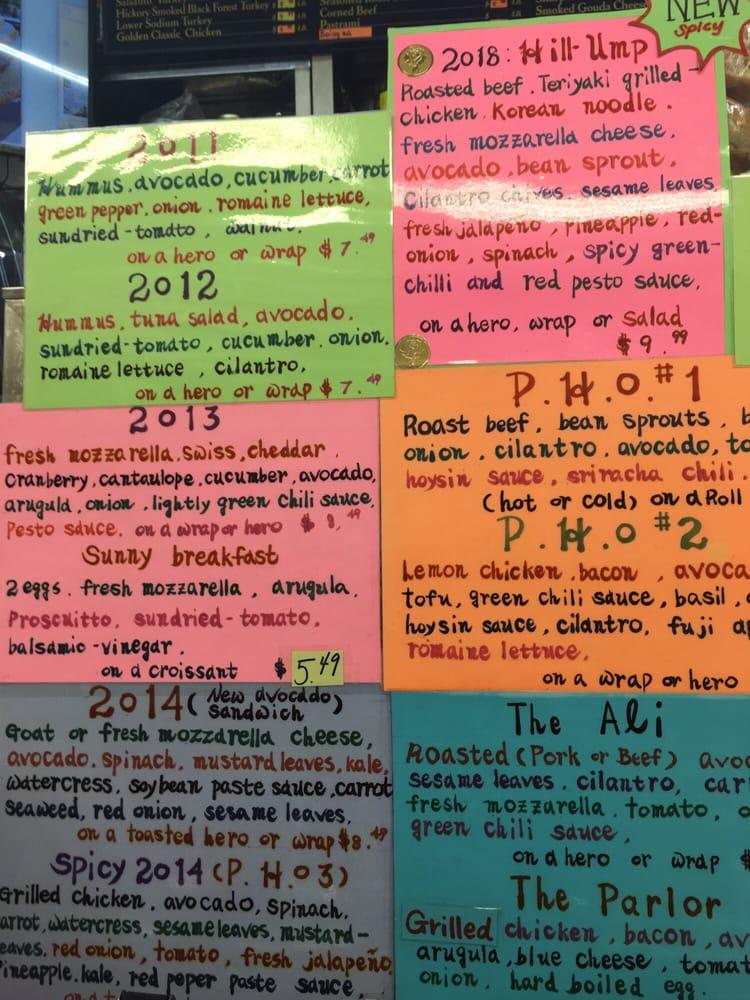 Hickory Smoked Black Forest Turkey
Lower Sodium Turkey
Golden Classic Chicken
Corned Beef
Pastrami
Smoked Gouda Cheese
NEW
Spicy
2011
Hummus, avocado, cucumber, carrot
green pepper, onion, romaine lettuce,
sundried-tomato, walnut.
on a hero or wrap $7.49
2012
Hummus, tuna salad, avocado.
sundried-tomato, cucumber, onion,
romaine lettuce, cilantro,
on a hero or wrap $7.49
2013
fresh mozzarella, Swiss, cheddar,
Cranberry, cantaulope, cucumber, avocado,
arugula, onion, lightly green chili sauce,
Pesto sauce. on a wrap or hero $8.49
Sunny breakfast
2 eggs. fresh mozzarella, arugula,
Proscuitto, sundried-tomato,
balsamic-vinegar.
on a croissant $5.49
2014 (New avocado)
Sandwich
Goat or fresh mozzarella cheese,
avocado, spinach, mustard leaves, kale,
watercress, soybean paste sauce, carrot
seaweed, red onion, sesame leaves,
on a toasted hero or wrap $8.49
Spicy 2014 (P.H.03)
Grilled chicken, avocado, spinach,
arrot, watercress, sesame leaves, mustard-
eaves, red onion, tomato, fresh jalapeño,
Pineapple, kale, red peper paste sauce
2018: Hill-Ump
Roasted beef. Teriyaki grilled-
chicken. Korean noodle.
fresh mozzarella cheese,
avocado, bean sprout,
Cilantro chives, sesame leaves,
fresh jalapeño, pineapple, red-
onion, spinach, spicy green-
chilli and red pesto sauce,
on a hero, wrap or salad
$9.99
P.H.O.#1
Roast beef, bean sprouts, b
onion, cilantro, avocado, to
hoysin sauce, sriracha chili.
(hot or cold) on a Roll
P.H.O #2
Lemon chicken, bacon, avoca
tofu, green chili sauce, basil,
hoysin sauce, cilantro, fuji ap
romaine lettuce,
on a wrap or hero
The Ali
Roasted (Pork or Beef) avoc
sesame leaves, cilantro, car
fresh mozzarella, tomato, o
green chili sauce,
on a hero or wrap $
The Parlor
Grilled chicken, bacon, av
arugula, blue cheese, tomat
onion, hard boiled egg.